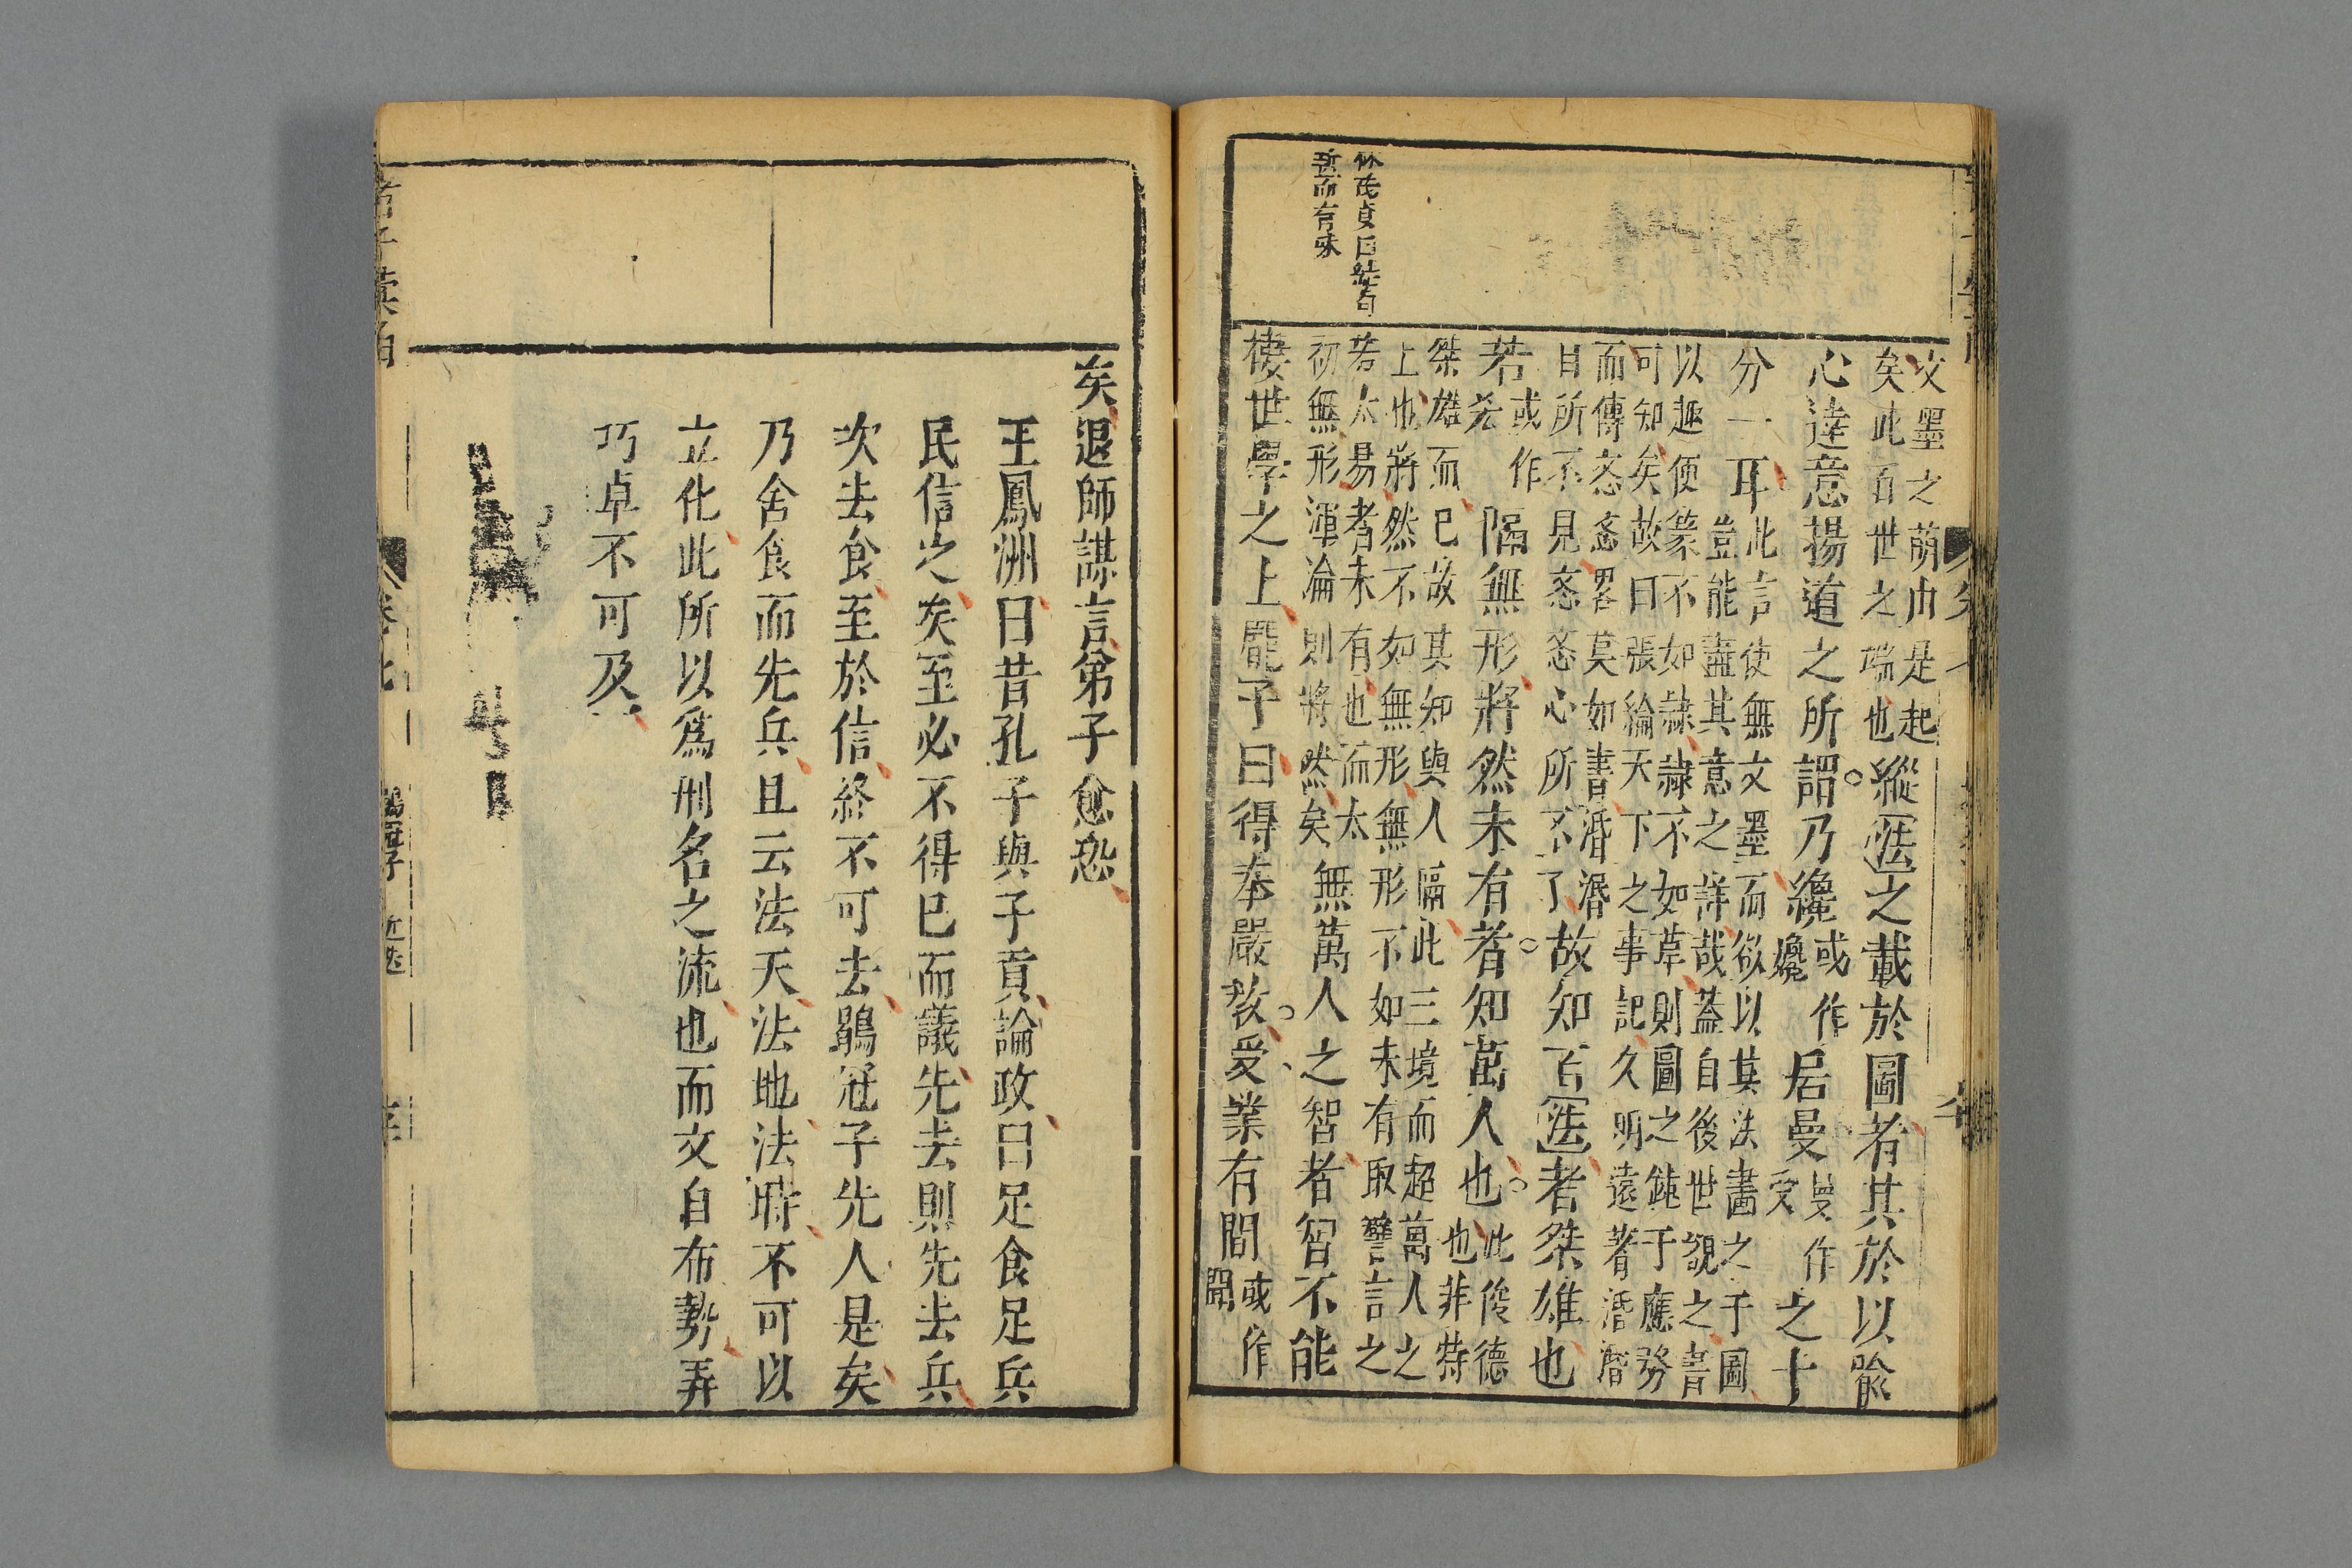 文墨之萌由是起
矣此百世之端也
縱㳒之載於圖者其於以隃
心達意揚道之所謂乃纔
或作
㜶
居曼
曼作
受
之十
分一耳
此言使無文墨而欲以其法畫之于圖
豈能盡其意之詳哉蓋自後世觀之書
以趣便篆不如隷隷不如草則圖之鈍于應務
可知矣故曰張綸天下之事記久明遠著湣湣
而傳忞忞畧莫如書湣湣
目所不見忞忞心所不了
故知百㳒者桀雄也
若
或作
㳍
隔無形將然未有者知萬人也
此俊德
也非特
桀雄而已故其知與人隔此三境而超萬人之
上也將然不如無形無形不如未有取譬言之
若太易者未有也而太
初無形渾淪則將然矣
無萬人之智者智不能
棲世學之上龐子曰得奉嚴敎受業有間
或作
聞
林茂貞曰結句
逝而有味
矣退師謀言弟子愈恐
王鳳洲曰昔孔子與子貢論政曰足食足兵
民信之矣至必不得已而議先去則先去兵
次去食至於信終不可去鶡冠子先人是矣
乃舍食而先兵且云法天法地法時不可以
立化此所以爲刑名之流也而文自布勢弄
巧卓不可及
鶡冠子 近迭